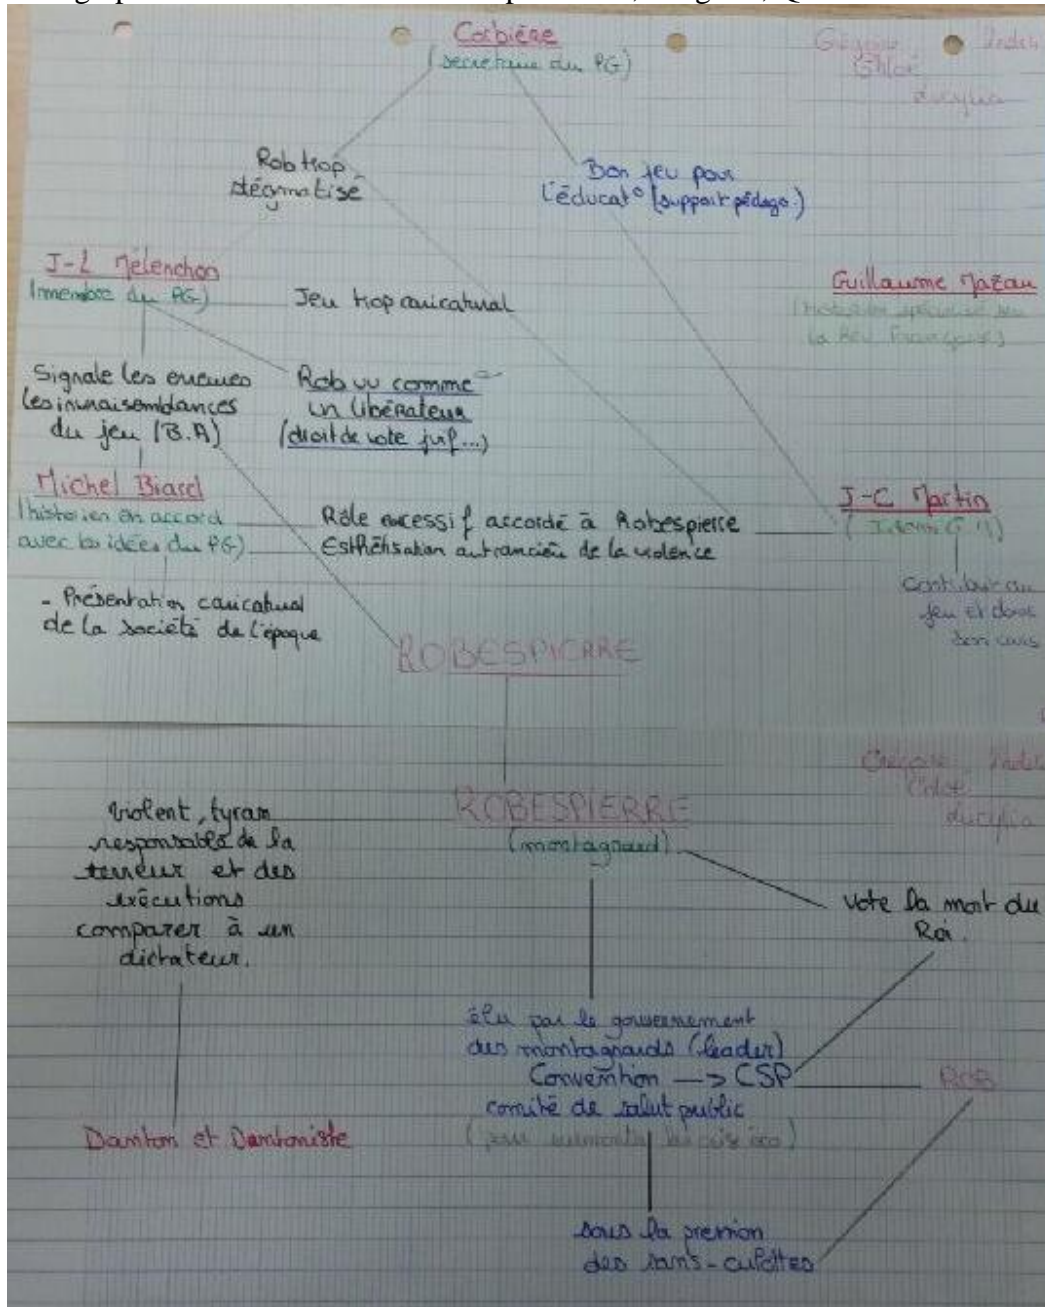 Corbière
(secrétaire du PG)
Grégoire Indi
Chloé
Lucylia
Rob trop
dégmatisé
Bon jeu pour
l'éducat° (support pédago.)
J-L Mélenchon
(membre du PG)
Jeu trop caricatural
Guillaume Mazau
(historien spécialisé sur
la Rév Française)
Signale les erreurs
les invraisemblances
du jeu (B.A)
Rob vu comme
un libérateur
(droit de vote juif...)
Michel Biard
(historien en accord
avec les idées du PG)
Rôle excessif accordé à Robespierre
Esthétisation outrancière de la violence
J-C Martin
contribue au
jeu et donne
son avis
- Présentation caricatural
de la société de l'époque
ROBESPIERRE
Grégoire Indi
Chloé
Lucylia
Violent, tyran
responsable de la
terreur et des
exécutions
comparer à un
dictateur.
ROBESPIERRE
(montagnard)
vote la mort du
Roi.
élu par le gouvernement
des montagnards (leader)
Convention -> CSP
comité de salut public
(pour surmonter la crise éco)
ROB
Danton et Dantoniste
sous la pression
des sans-culottes